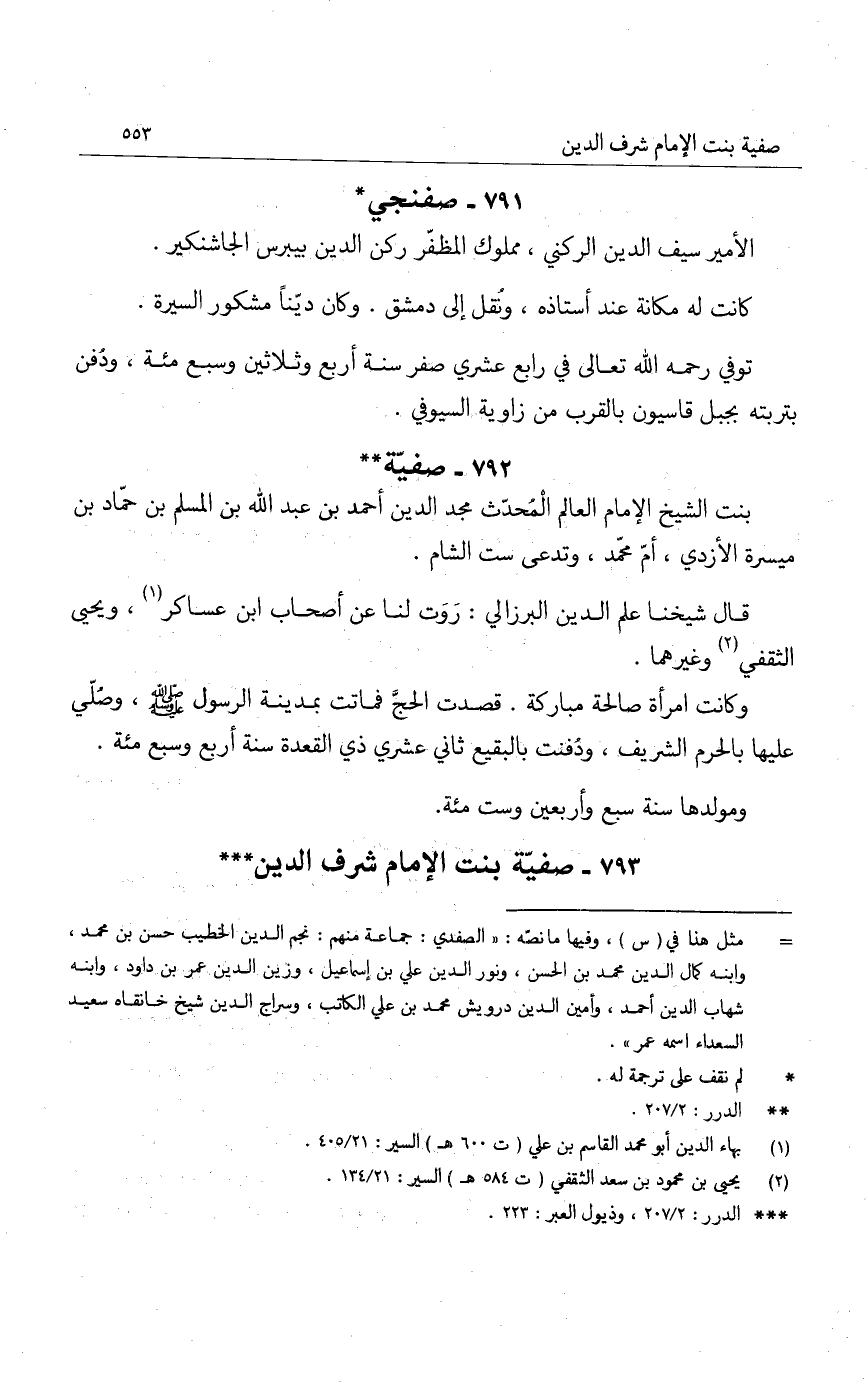 صفية بنت الإمام شرف الدين ٥٥٣
٧٩١ ـ صفنجي*
الأمير سيف الدين الركني ، مملوك المظفّر ركن الدين بيبرس الجاشنكير .
كانت له مكانة عند أستاذه ، ونُقل إلى دمشق . وكان ديّناً مشكور السيرة .
توفي رحمه الله تعالى في رابع عشري صفر سنة أربع وثلاثين وسبع مئة ، ودُفن
بتربته بجبل قاسيون بالقرب من زاوية السيوفي .
٧٩٢ ـ صفيّة**
بنت الشيخ الإمام العالم الْمُحدّث مجد الدين أحمد بن عبد الله بن المسلم بن حمّاد بن
ميسرة الأزدي ، أمّ محمّد ، وتدعى ست الشام .
قال شيخنا علم الدين البرزالي : رَوَت لنا عن أصحاب ابن عساكر(١) ، ويحيى
الثقفي(٢) وغيرهما .
وكانت امرأة صالحة مباركة . قصدت الحجَّ فماتت بمدينة الرسول ﷺ ، وصُلّي
عليها بالحرم الشريف ، ودُفنت بالبقيع ثاني عشري ذي القعدة سنة أربع وسبع مئة .
ومولدها سنة سبع وأربعين وست مئة.
٧٩٣ ـ صفيّة بنت الإمام شرف الدين***
= مثل هنا في ( س ) ، وفيها ما نصّه : « الصفدي : جماعة منهم : نجم الدين الخطيب حسن بن محمد ،
وابنه كمال الدين محمد بن الحسن ، ونور الدين علي بن إسماعيل ، وزين الدين عمر بن داود ، وابنه
شهاب الدين أحمد ، وأمين الدين درويش محمد بن علي الكاتب ، وسراج الدين شيخ خانقاه سعيد
السعداء اسمه عمر » .
* لم نقف على ترجمة له .
** الدرر : ٢٠٧/٢ .
(١) بهاء الدين أبو محمد القاسم بن علي ( ت ٦٠٠ هـ ) السير : ٤٠٥/٢١ .
(٢) يحيى بن محمود بن سعد الثقفي ( ت ٥٨٤ هـ ) السير : ١٣٤/٢١ .
*** الدرر : ٢٠٧/٢ ، وذيول العبر : ٢٢٣ .